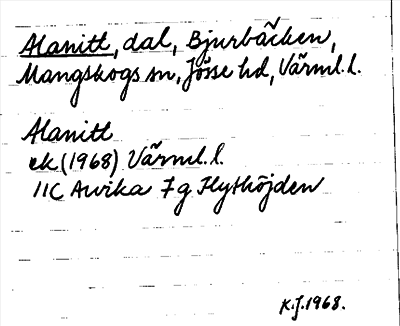 Alanitt, dal, Bjurbäcken,
Mangskogs sn, Jösse hd, Värml. l.
Alanitt
ek (1968) Värml. l.
11C Arvika 7g Flythöjden
K.J. 1968.